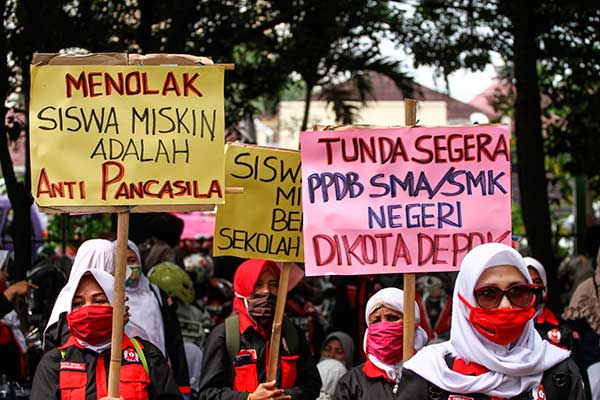 MENOLAK
SISWA MISKIN
ADALAH
ANTI PANCASILA
SISW
MI
BE
SEKOLAH
TUNDA SEGERA
PPDB SMA/SMK
NEGERI
DIKOTA DEPOK